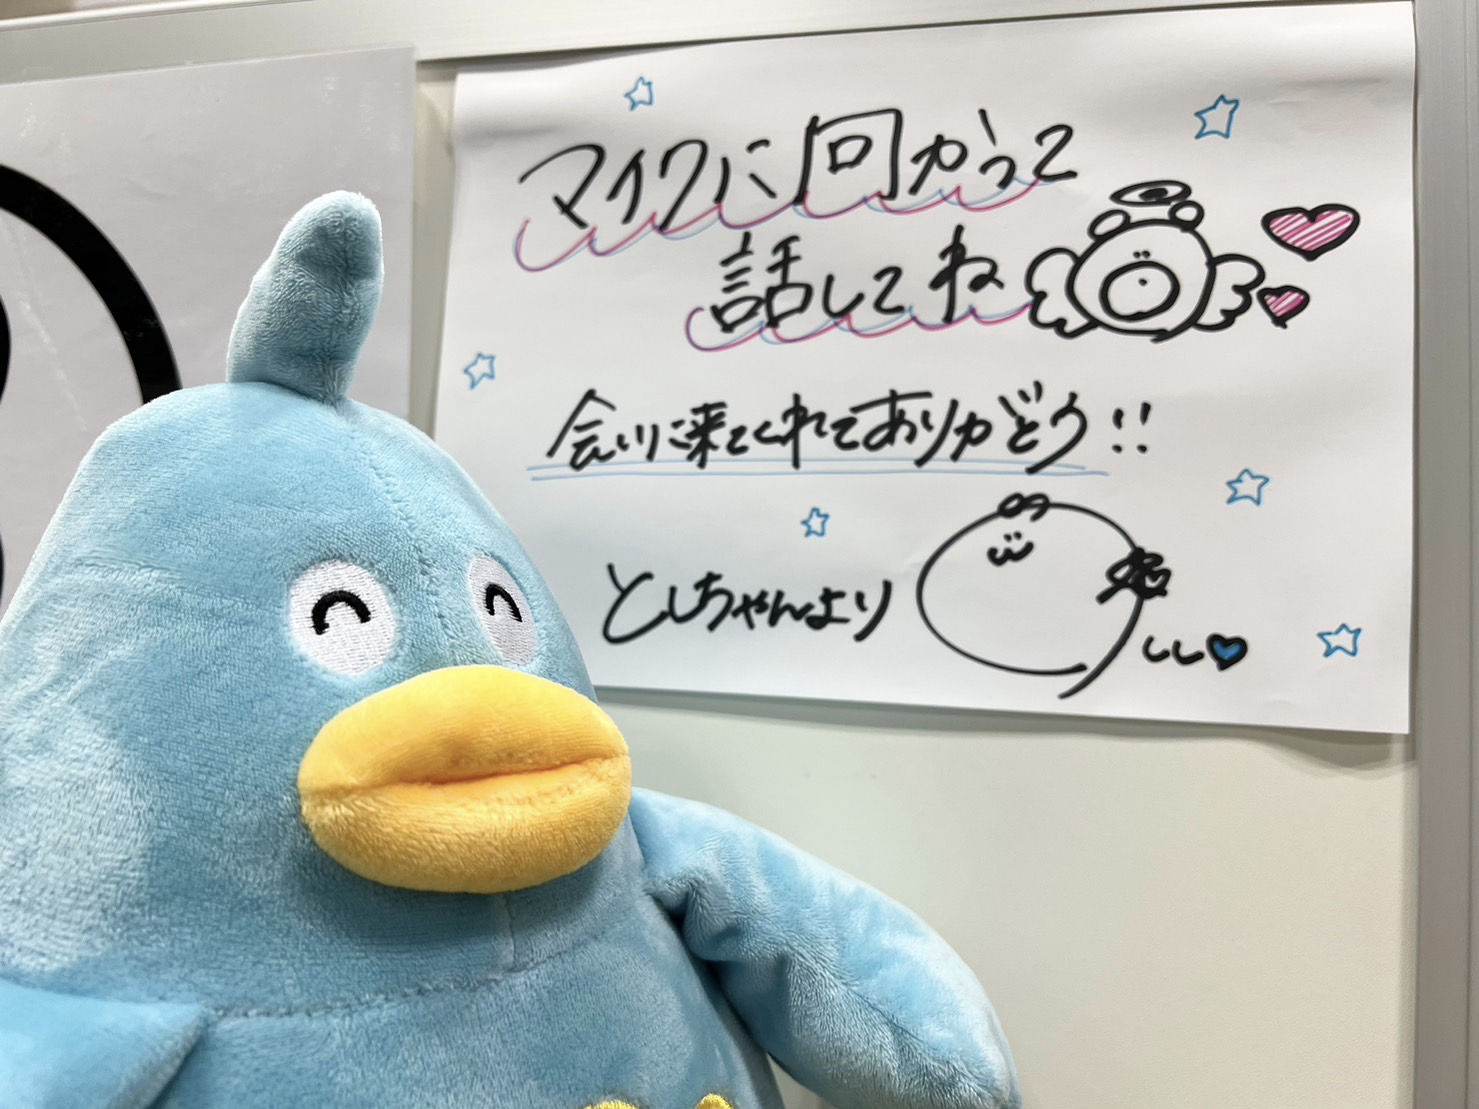 マイクに向かって
話してね
会いに来てくれてありがとう!!
としちゃんより